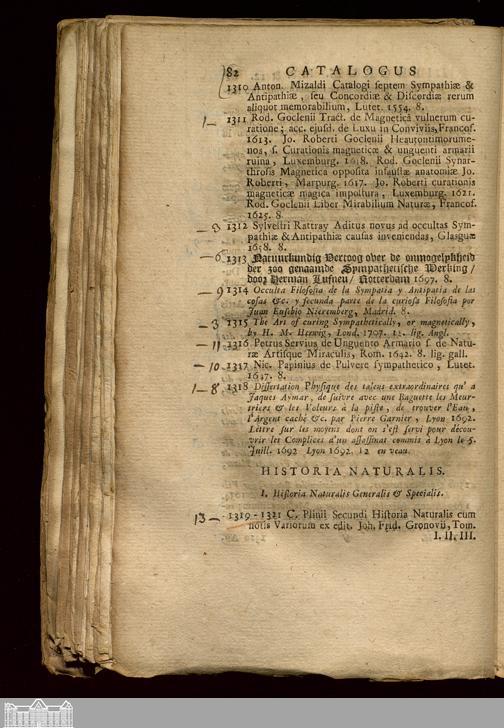 82 CATALOGUS
1310 Anton. Mizaldi Catalogi septem Sympathiæ &
Antipathiæ, seu Concordiæ & Discordiæ rerum
aliquot memorabilium, Lutet. 1554. 8.
1 — 1311 Rod. Goclenii Tract. de Magnetica vulnerum cu-
ratione; acc. ejusd. de Luxu in Conviviis, Francof.
1613. Jo. Roberti Goclenii Heautontimorume-
nos, s. Curationis magneticæ & unguenti armarii
ruina, Luxemburg. 1618. Rod. Goclenii Synar-
throsis Magnetica opposita infaustæ anatomiæ Jo.
Roberti, Marpurg. 1617. Jo. Roberti curationis
magneticæ magica impostura, Luxemburg. 1621.
Rod. Goclenii Liber Mirabilium Naturæ, Francof.
1625. 8.
— 3 1312 Sylvestri Rattray Aditus novus ad occultas Sym-
pathiæ & Antipathiæ causas inveniendas, Glasguæ
1658. 8.
— 6 1313 Natuurkundig Vertoog over de onmogelykheid
der zoo genaamde Sympathetische Werking /
door Herman Lufneu / Rotterdam 1697. 8.
— 9 1314 Occulta Filosofia de la Sympatia y Antipatia de las
cosas &c. y secunda parte de la curiosa Filosofia por
Juan Eusebio Nieremberg, Madrid. 8.
— 3 1315 The Art of curing Sympathetically, or magnetically,
by H. M. Herwig, Lond. 1700. 12. lig. Angl.
— 11 1316 Petrus Servius de Unguento Armario s. de Natu-
ræ Artisque Miraculis, Rom. 1642. 8. lig. gall.
— 10 1317 Nic. Papinius de Pulvere sympathetico, Lutet.
1647. 8.
1 — 8 1318 Dissertation Physique des talens extraordinaires qu' a
Jaques Aymar, de suivre avec une Baguette les Meur-
triers & les Voleurs à la piste, de trouver l'Eau,
l'Argent caché &c. par Pierre Garnier, Lyon 1692.
Lettre sur les moyens dont on s'est servi pour décou-
vrir les Complices d'un assassinat commis à Lyon le 5.
Juill. 1692 Lyon 1692. 12 en veau.
HISTORIA NATURALIS.
I. Historia Naturalis Generalis & Specialis.
13 — 1319-1321 C. Plinii Secundi Historia Naturalis cum
notis Variorum ex edit. Joh. Frid. Gronovii, Tom.
I. II. III.